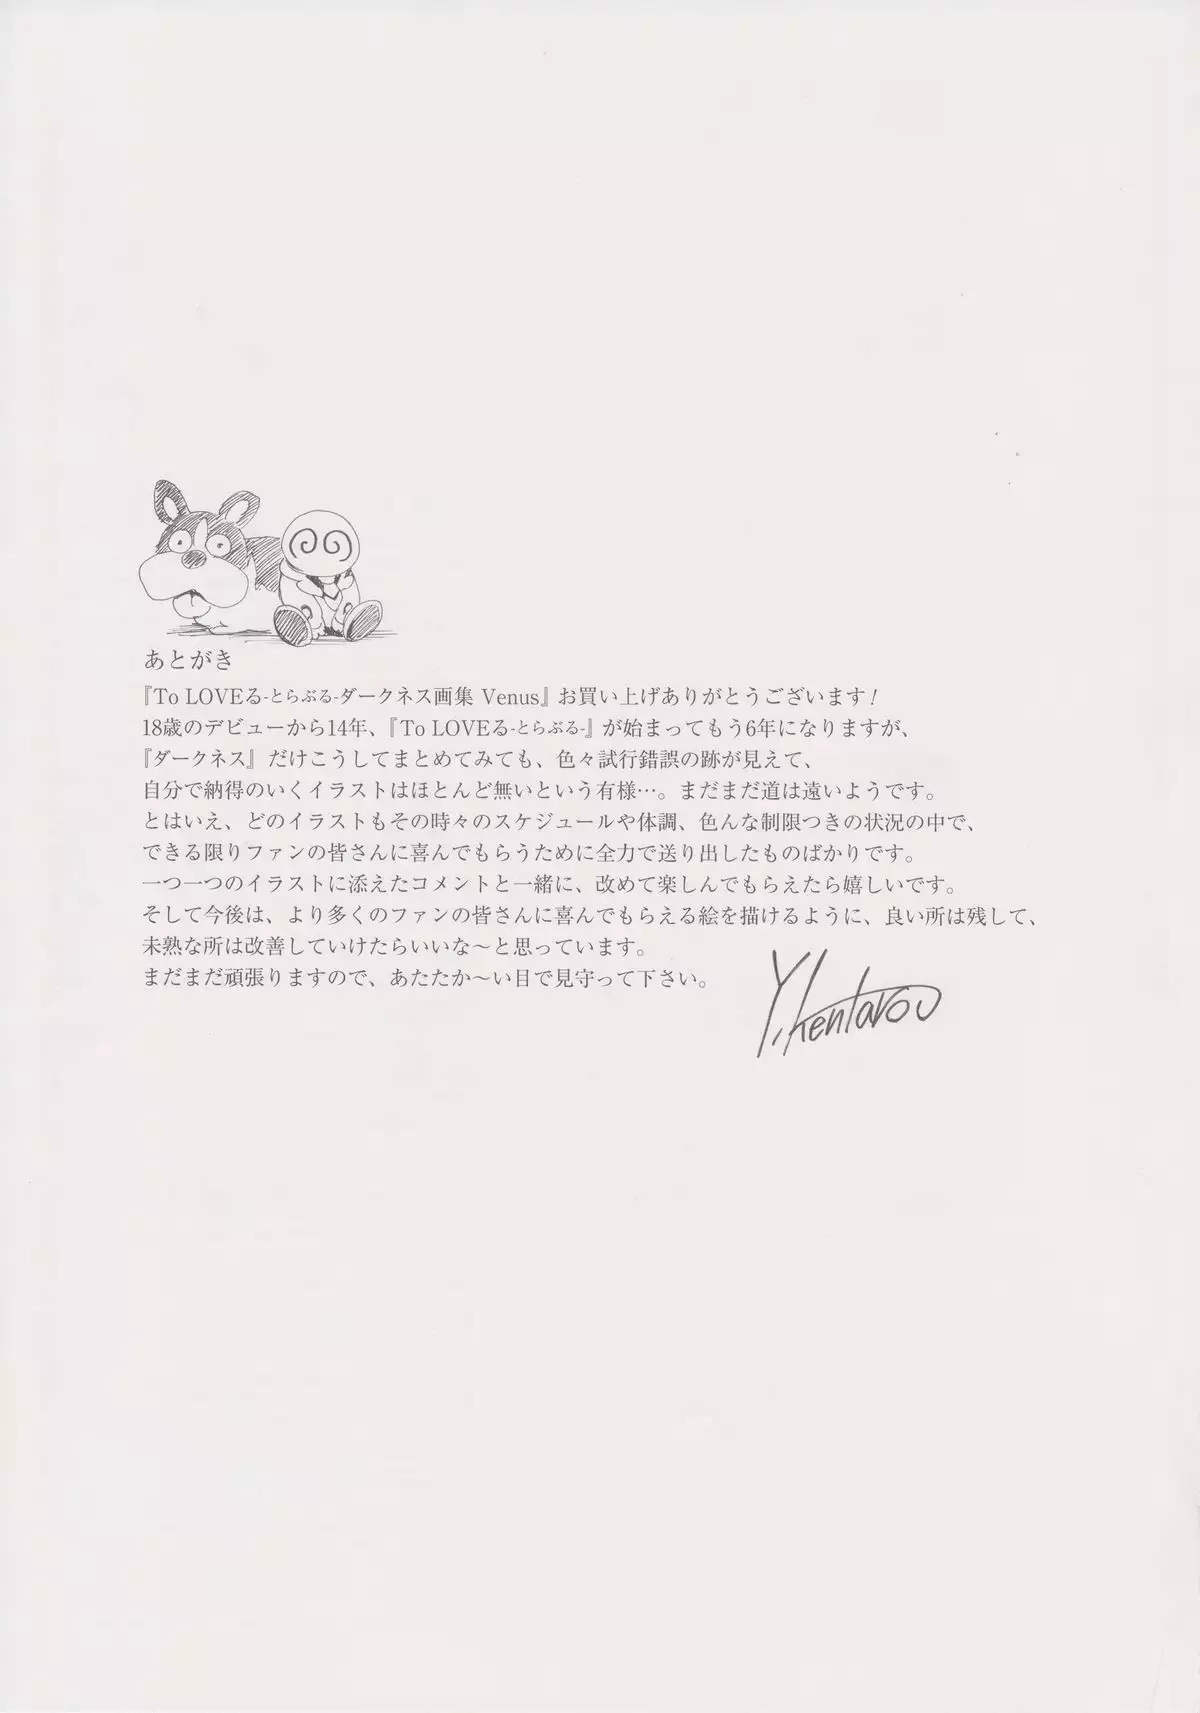 あとがき
『To LOVEる-とらぶる-ダークネス画集 Venus』お買い上げありがとうございます！
18歳のデビューから14年、『To LOVEる-とらぶる-』が始まってもう6年になりますが、
『ダークネス』だけこうしてまとめてみても、色々試行錯誤の跡が見えて、
自分で納得のいくイラストはほとんど無いという有様…。まだまだ道は遠いようです。
とはいえ、どのイラストもその時々のスケジュールや体調、色んな制限つきの状況の中で、
できる限りファンの皆さんに喜んでもらうために全力で送り出したものばかりです。
一つ一つのイラストに添えたコメントと一緒に、改めて楽しんでもらえたら嬉しいです。
そして今後は、より多くのファンの皆さんに喜んでもらえる絵を描けるように、良い所は残して、
未熟な所は改善していけたらいいな〜と思っています。
まだまだ頑張りますので、あたたか〜い目で見守って下さい。
Y.kentarou